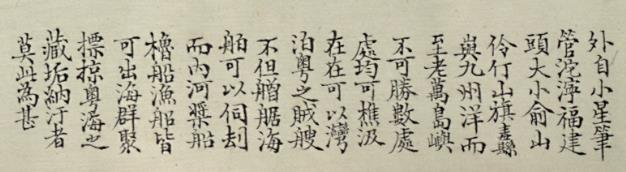 外自小星筆
管沱濘福建
頭大小俞山
伶仃山旗纛
與九州洋而
至老萬島嶼
不可勝數處
處均可樵汲
在在可以灣
泊粵之賊艘
不但艚艍海
舶可以伺刦
而內河槳船
櫓船漁船皆
可出海群聚
摽掠粵海之
藏垢納汙者
莫此為甚